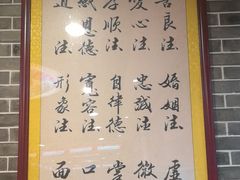 善良法、婚姻法、虚
愛心法、忠誠法、微
孝順法、自律德、掌
感恩德、寬容法、口
道法、形象法、面